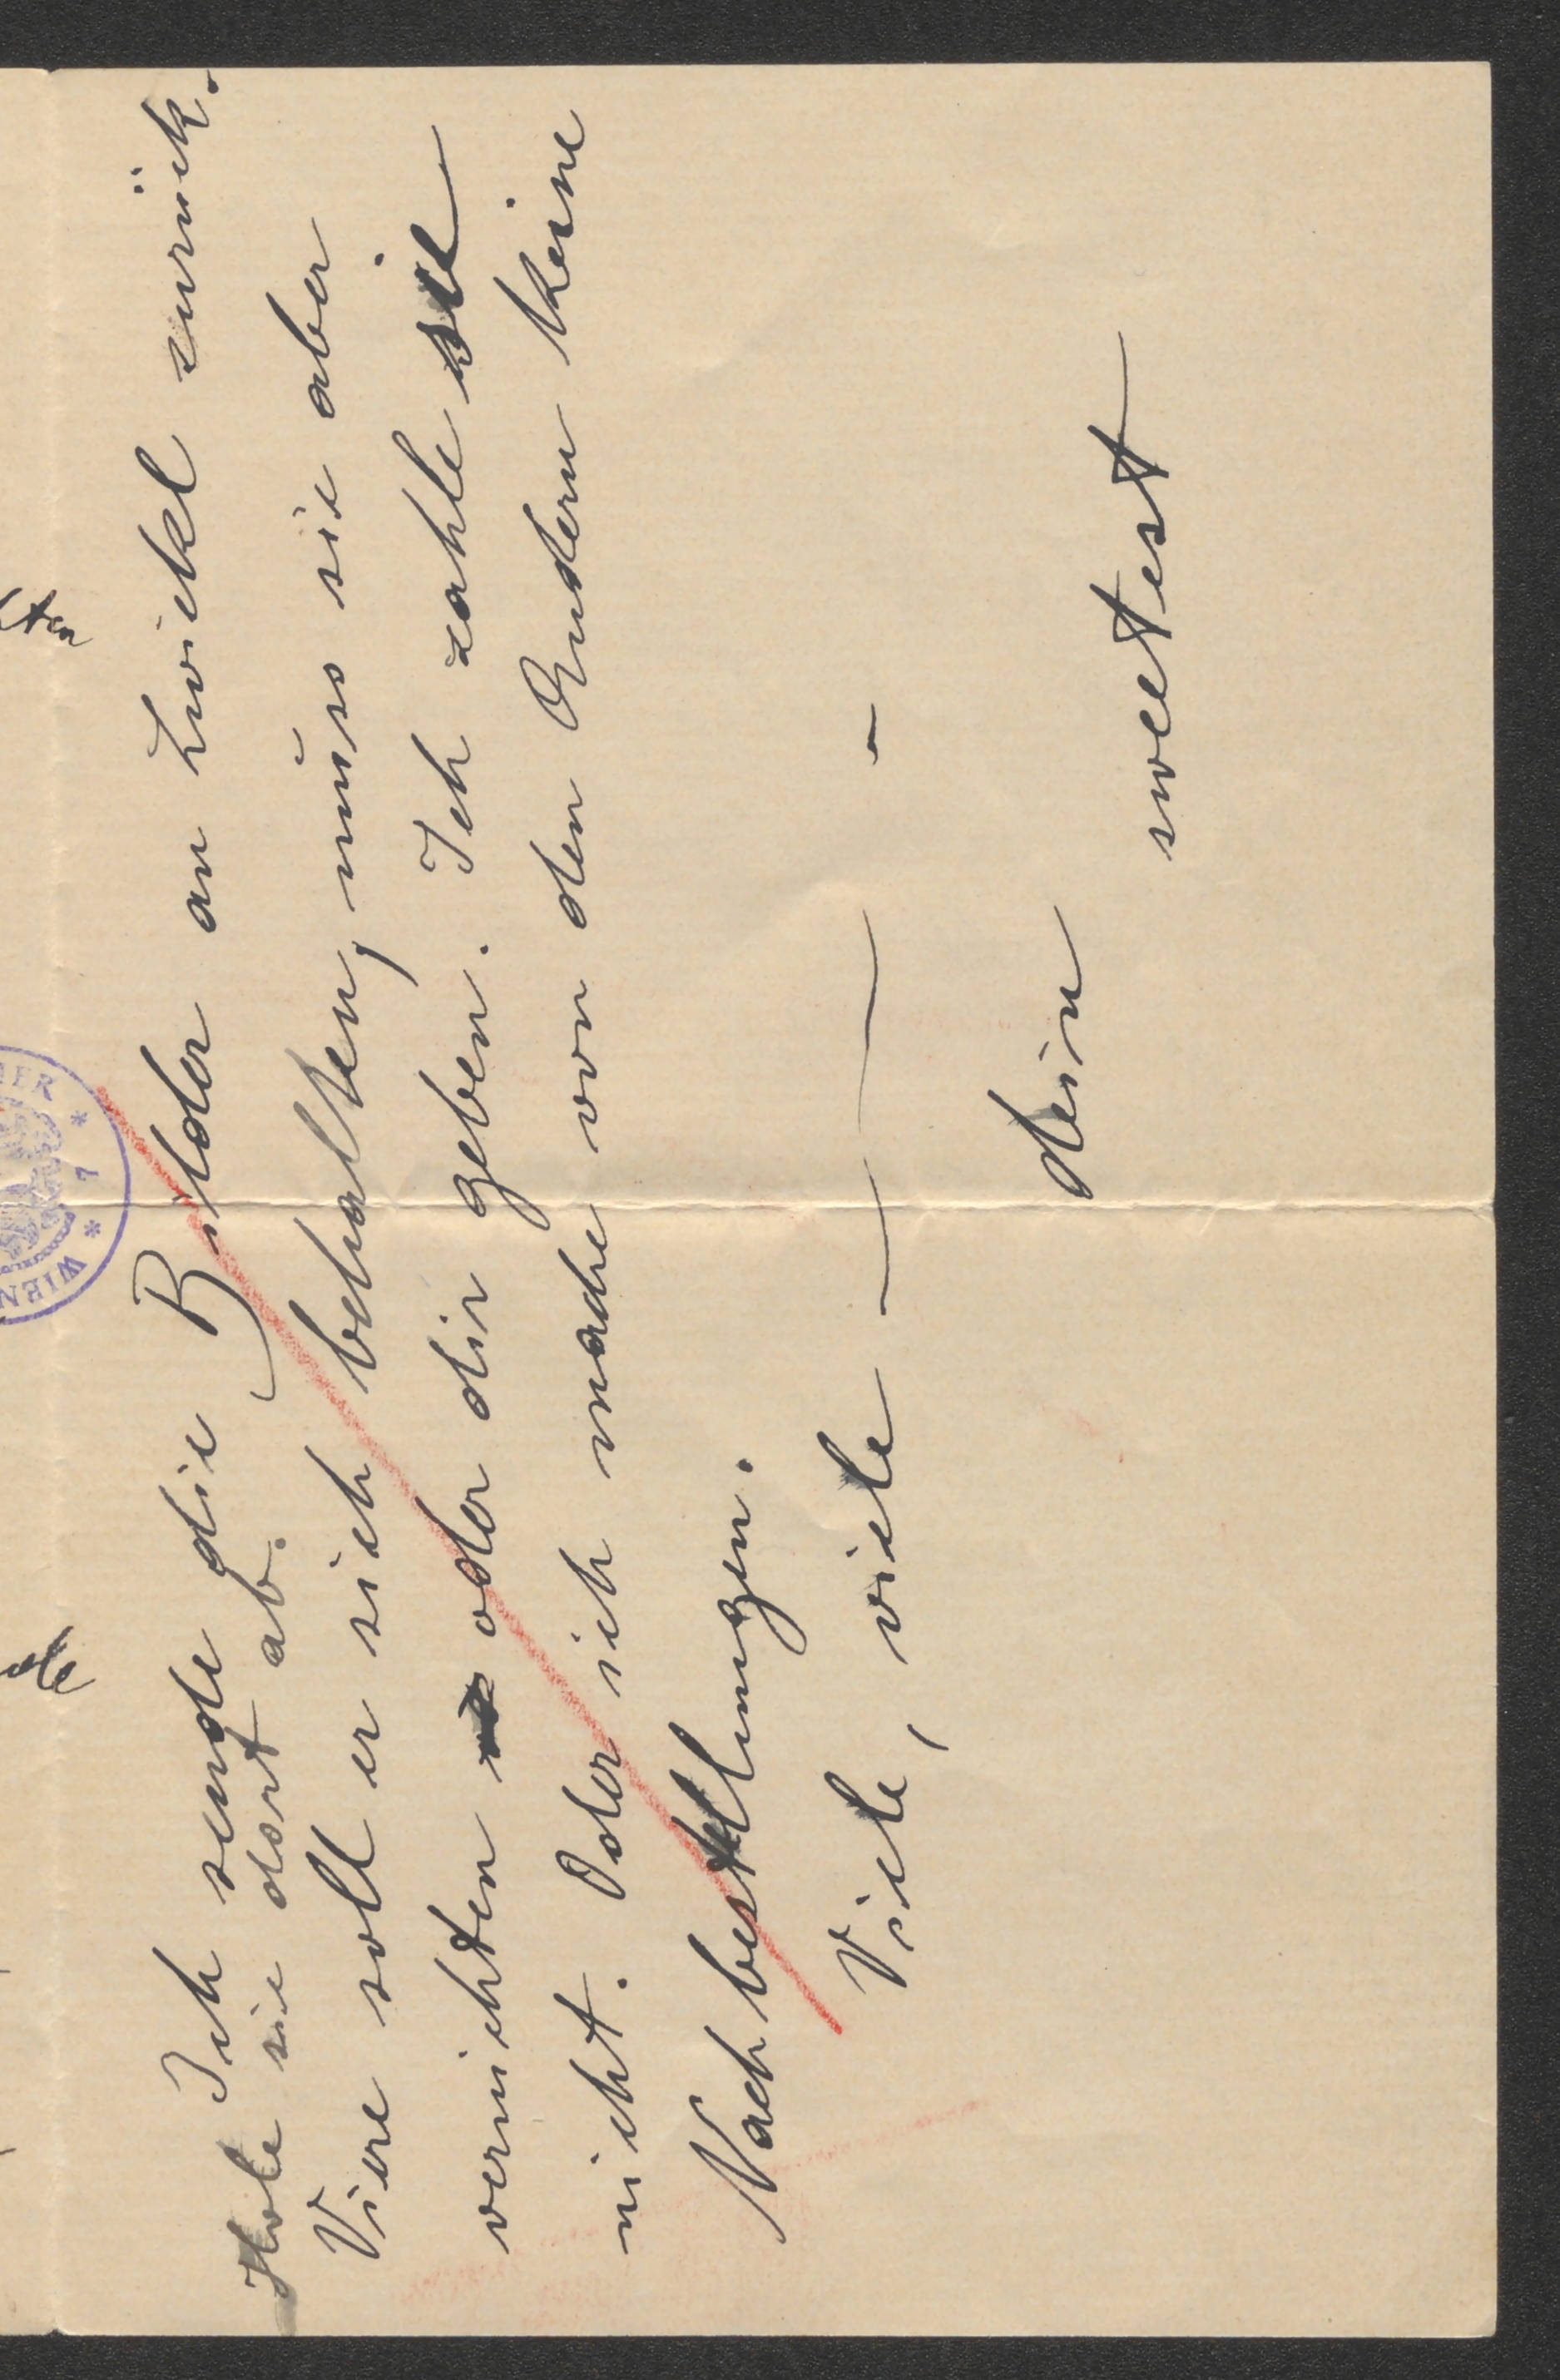 Ich sende die Bilder an Zwickel zurück.
Hole sie dort ab.
Viere soll er sich behalten, muss sie aber
vernichten oder dir geben. Ich zahle sie
nicht. Oder ich mache von den Andern keine
Nachbestellungen.
Viele, viele — — — — -
dein
sweetest
WIEN * 1 *